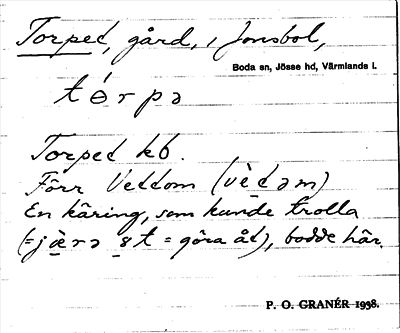 Torped, gård, i Jonsbol,
Boda sn, Jösse hd, Värmlands l.
tórpə
Torped kb.
Förr Veddom (vèdəm)
En käring, som kunde trolla
(=jæ̀rə st = göra åt), bodde här.
P. O. GRANÉR 1938.